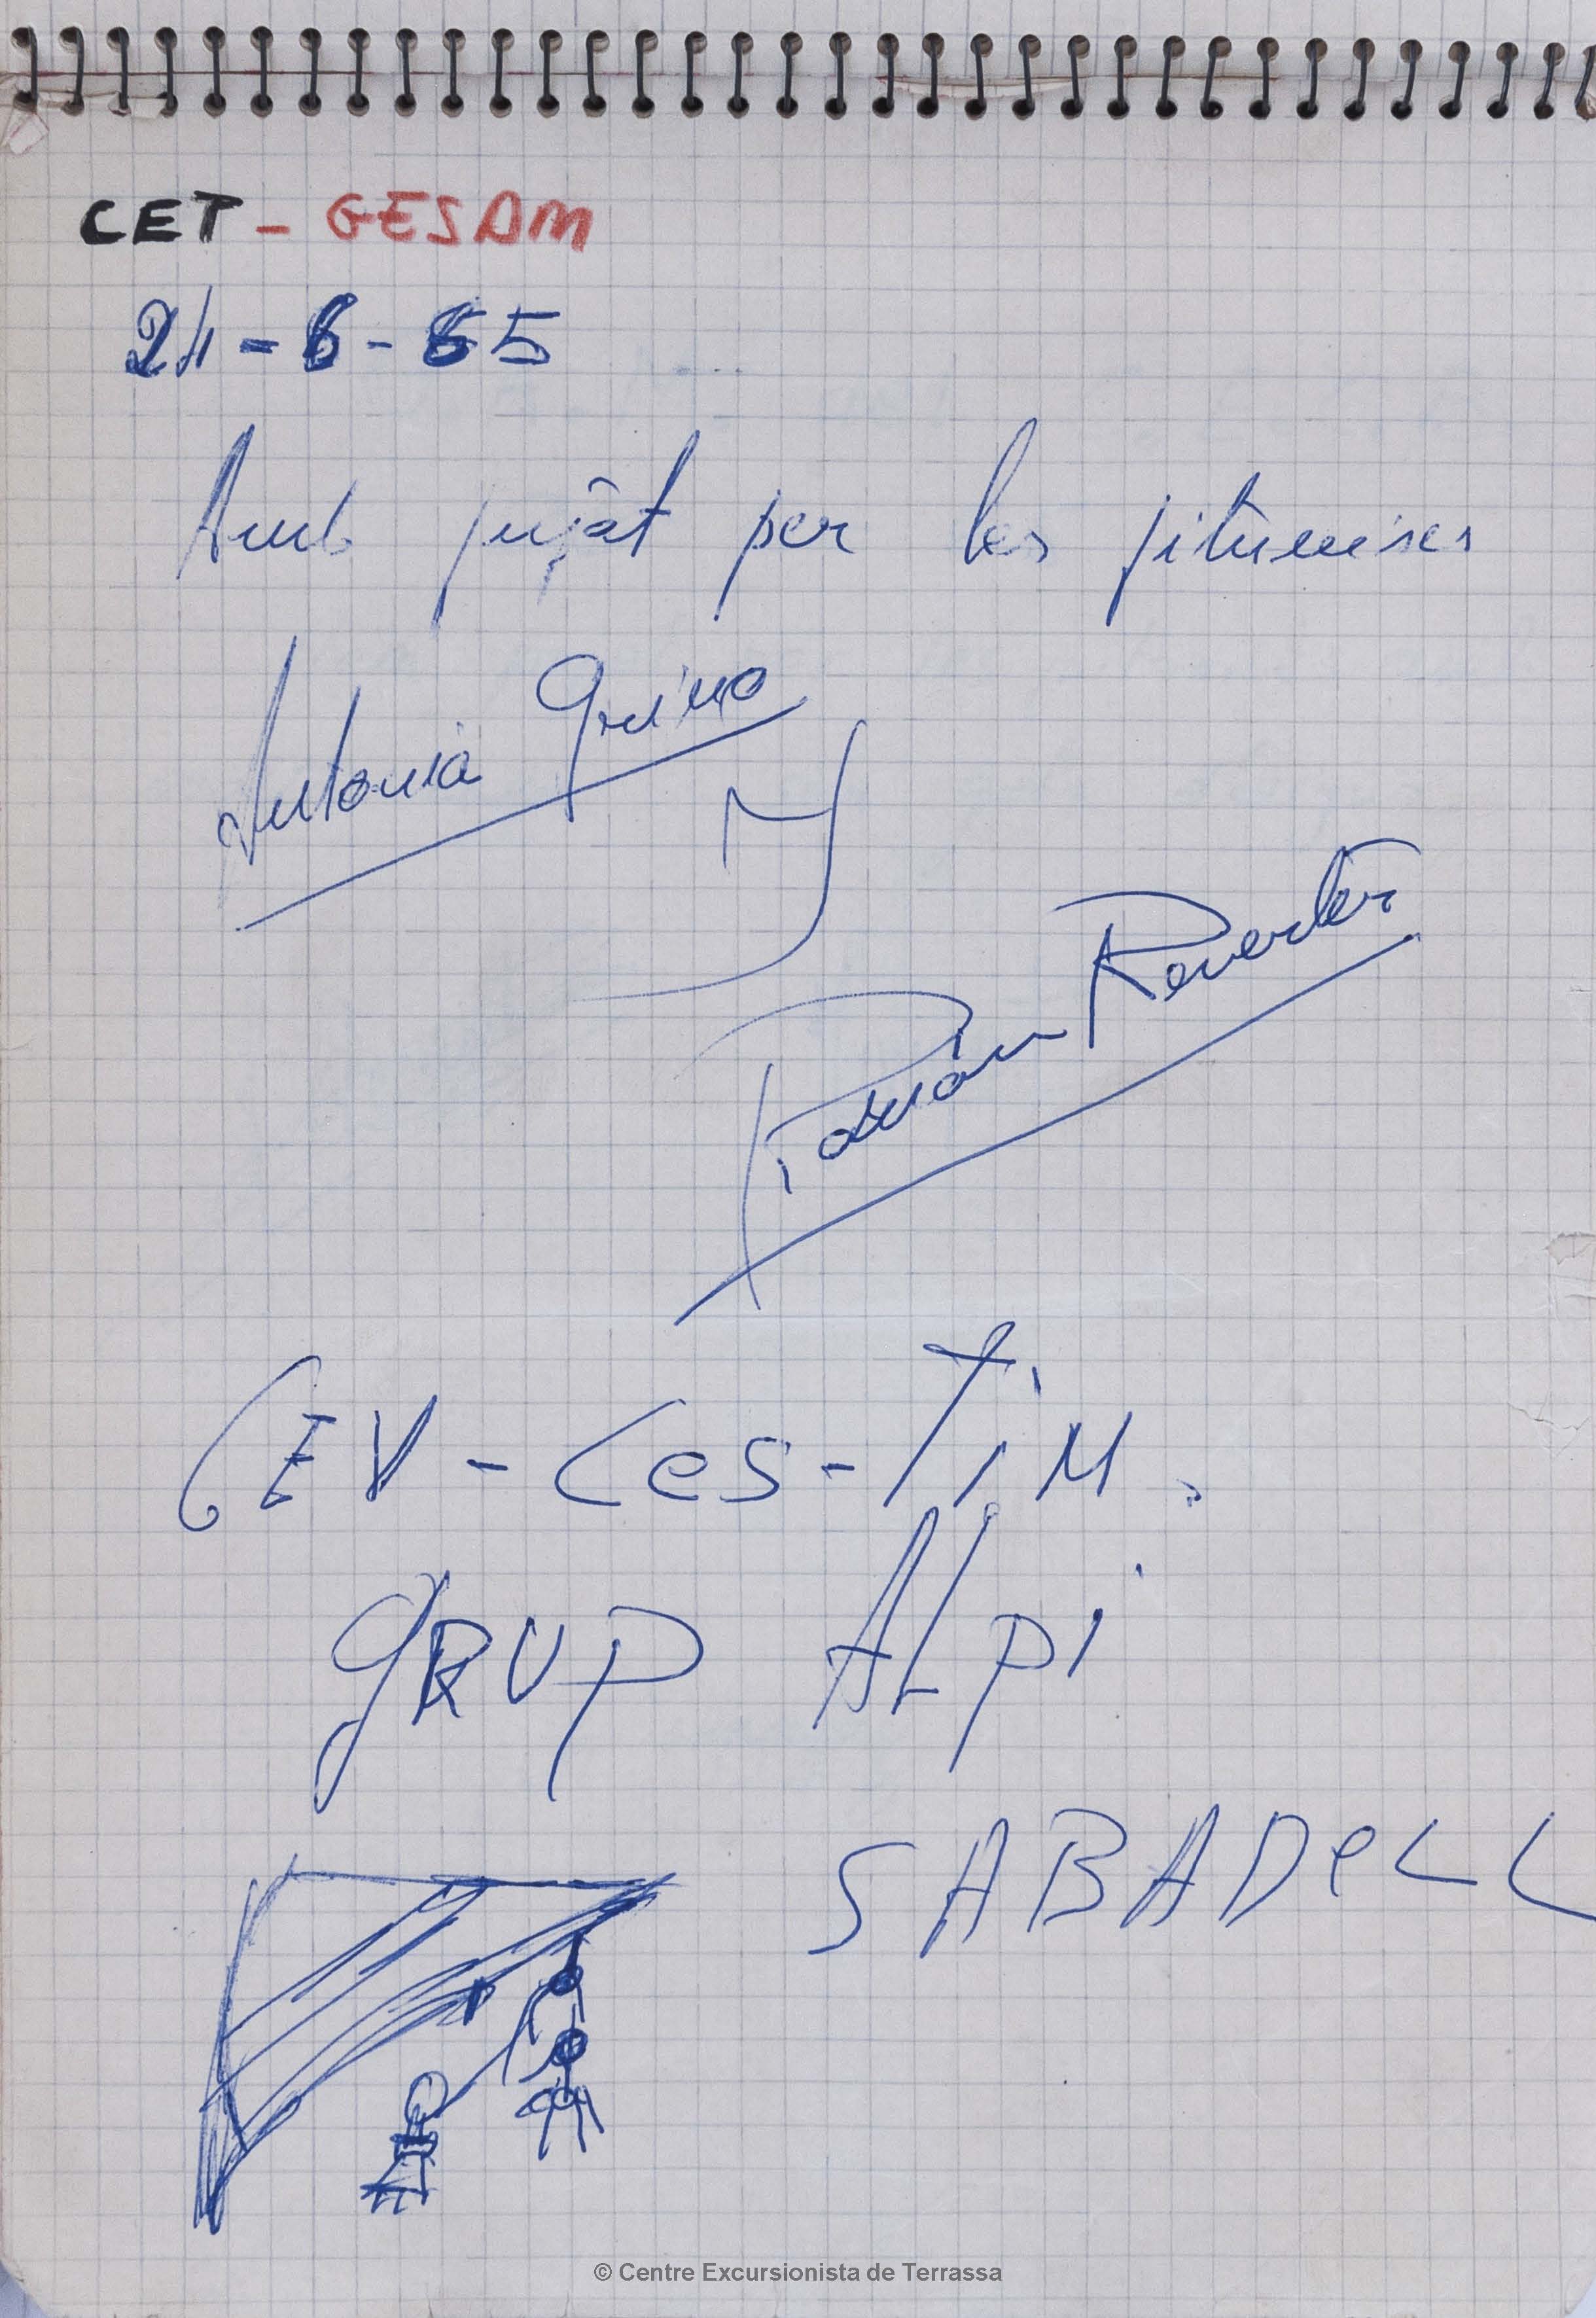 CET - GESAM
24 - 6 - 65
Amb pujat per les
Antonia Grúmo
y
Román Reverter
CEV - Ces - TiM.
GRUP ALpi
SABADeLL
© Centre Excursionista de Terrassa